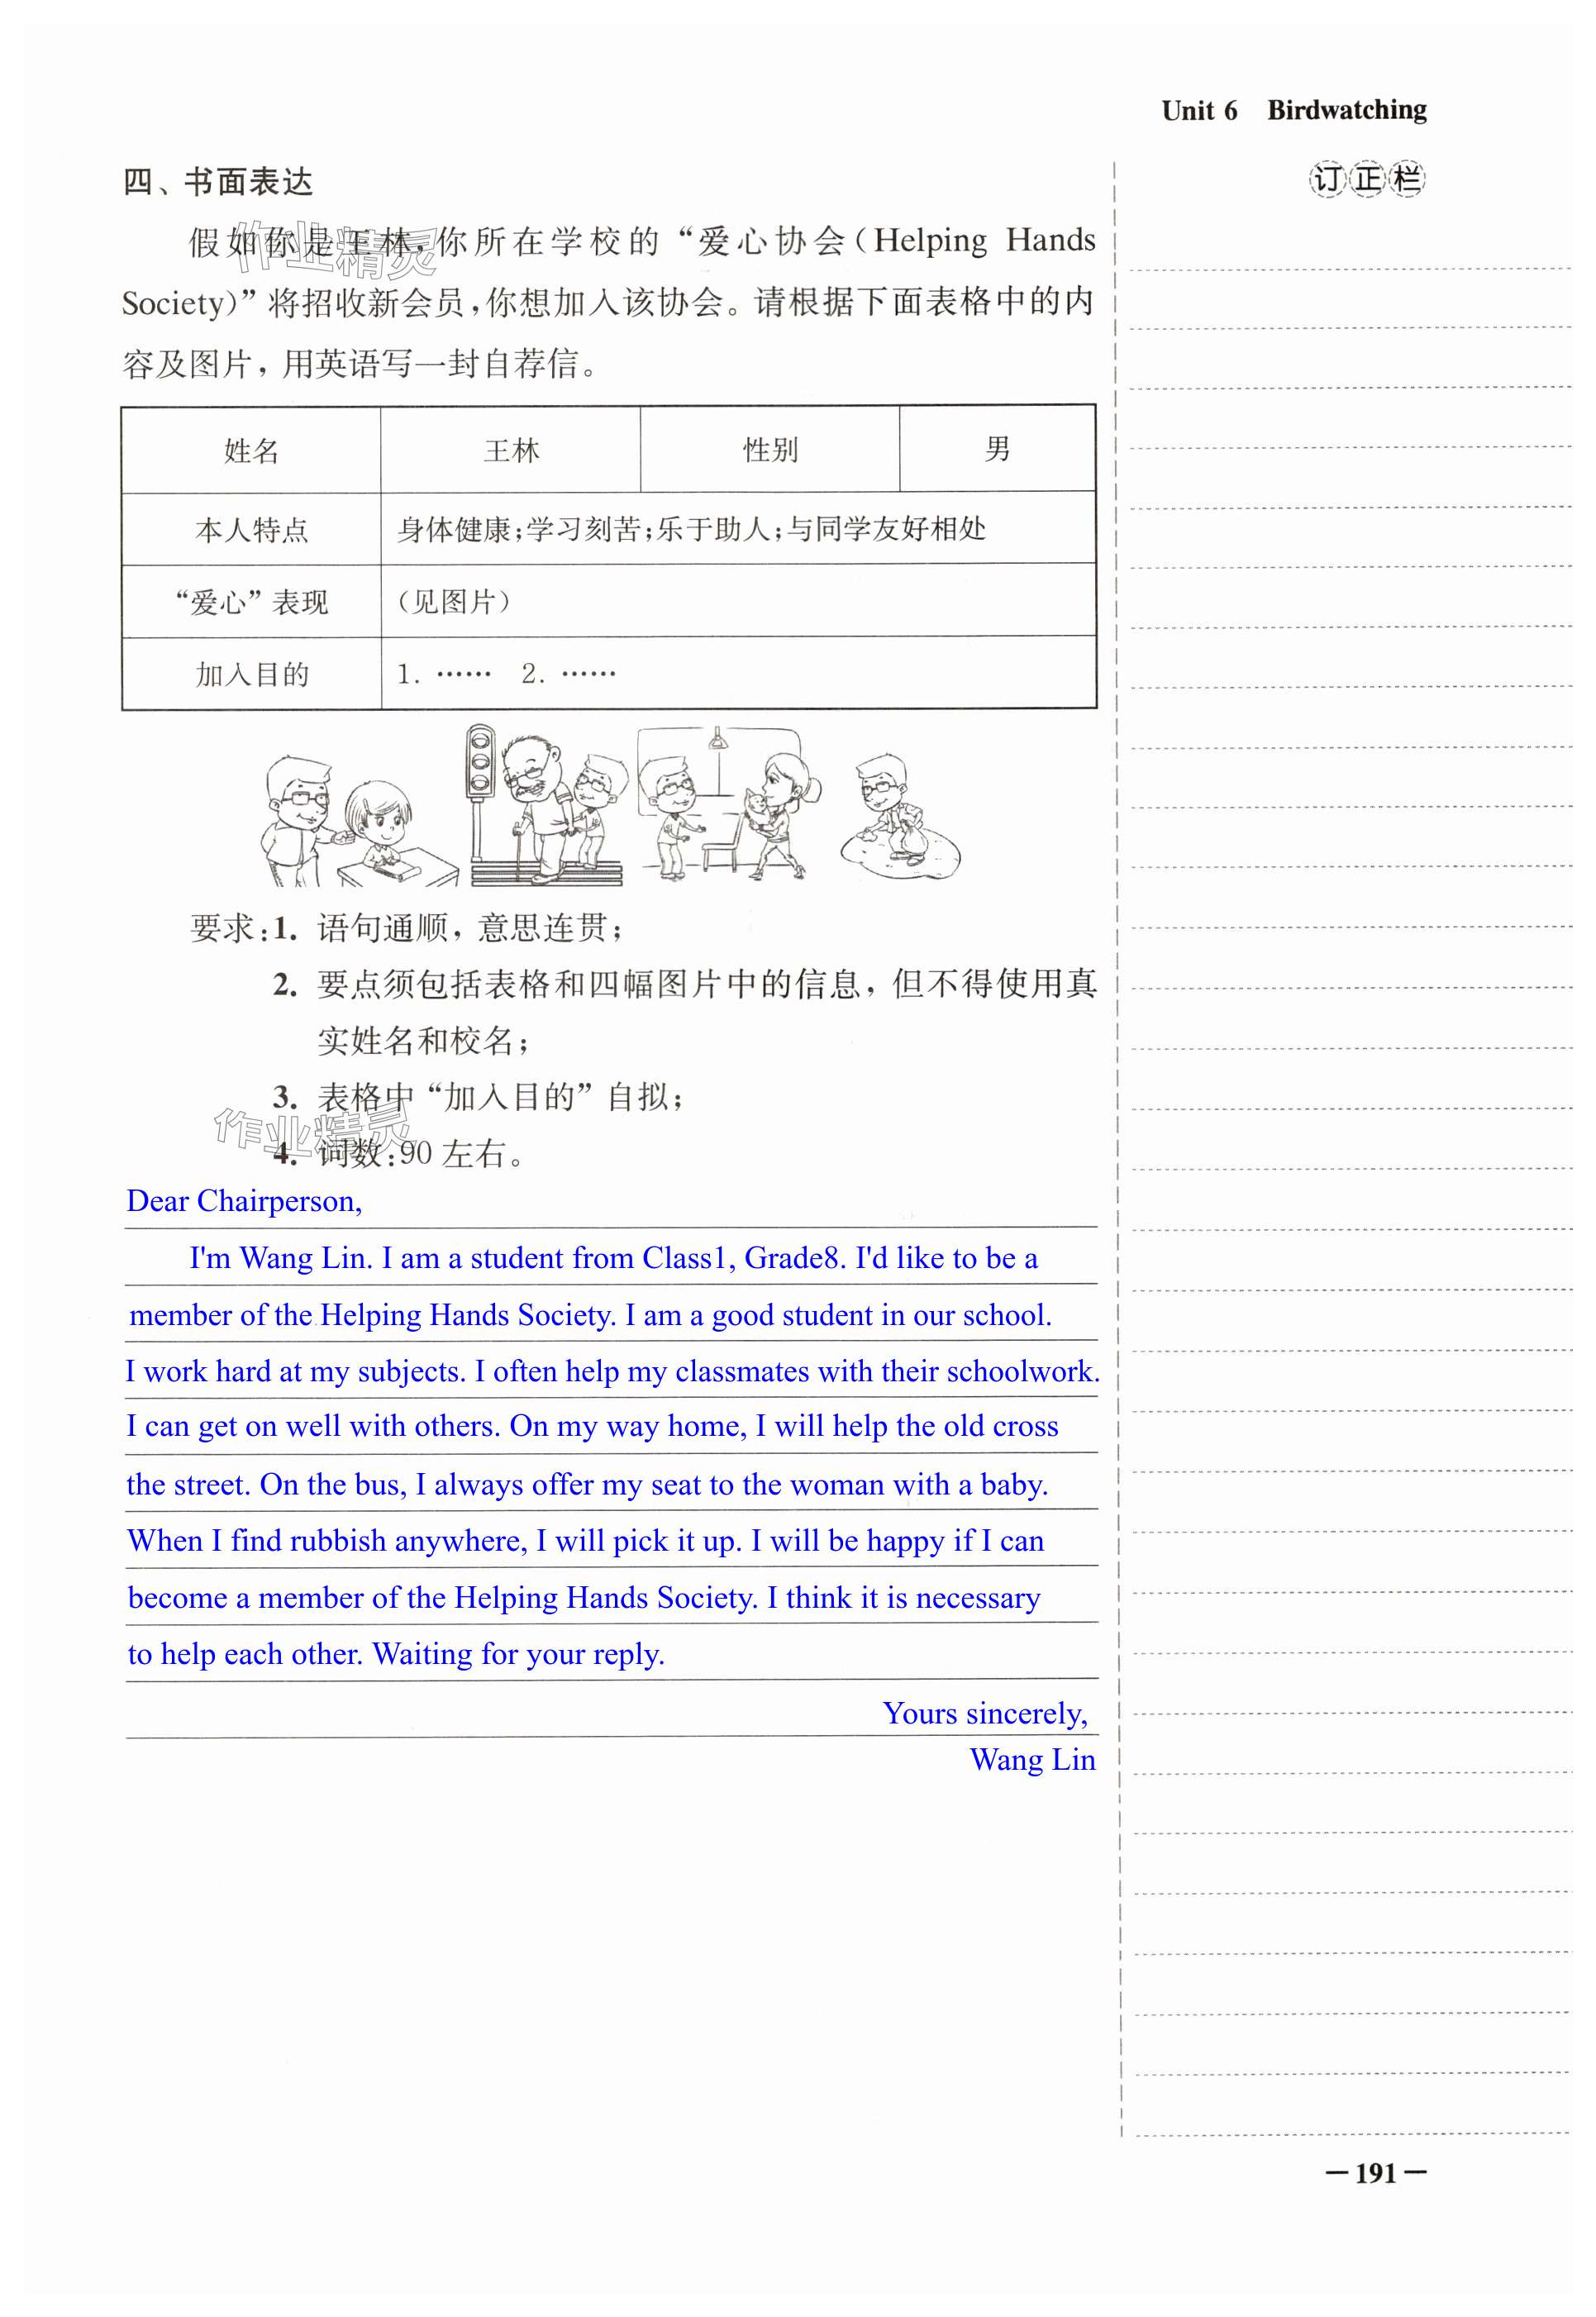 Unit 6 Birdwatching
四、书面表达
订正栏
假如你是王林,你所在学校的“爱心协会(Helping Hands
Society)”将招收新会员,你想加入该协会。请根据下面表格中的内
容及图片,用英语写一封自荐信。
作业精灵
姓名 王林 性别 男
本人特点 身体健康;学习刻苦;乐于助人;与同学友好相处
“爱心”表现 (见图片)
加入目的 1. …… 2. ……
要求:1. 语句通顺,意思连贯;
2. 要点须包括表格和四幅图片中的信息,但不得使用真
实姓名和校名;
3. 表格中“加入目的”自拟;
作业精灵
4. 词数:90 左右。
Dear Chairperson,
I'm Wang Lin. I am a student from Class1, Grade8. I'd like to be a
member of the Helping Hands Society. I am a good student in our school.
I work hard at my subjects. I often help my classmates with their schoolwork.
I can get on well with others. On my way home, I will help the old cross
the street. On the bus, I always offer my seat to the woman with a baby.
When I find rubbish anywhere, I will pick it up. I will be happy if I can
become a member of the Helping Hands Society. I think it is necessary
to help each other. Waiting for your reply.
Yours sincerely,
Wang Lin
— 191 —